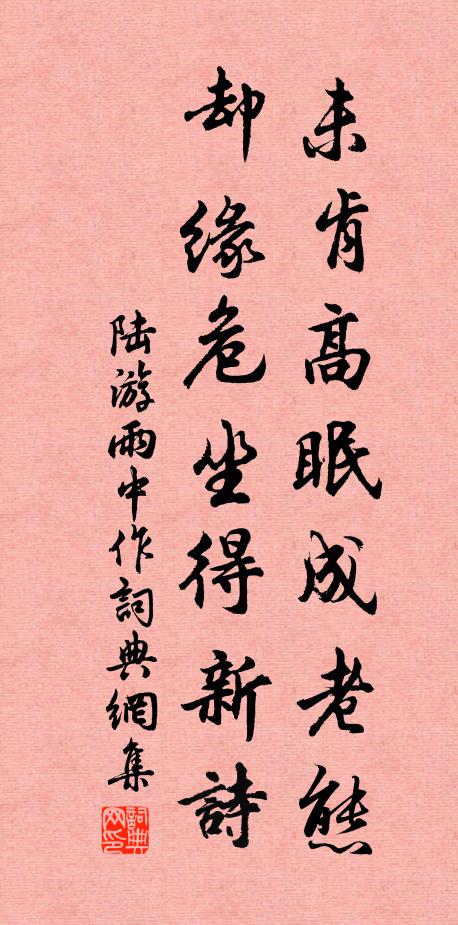 未肯高眠成老態
却緣危坐得新詩
陆游雨中作詞典網集
詞典网印